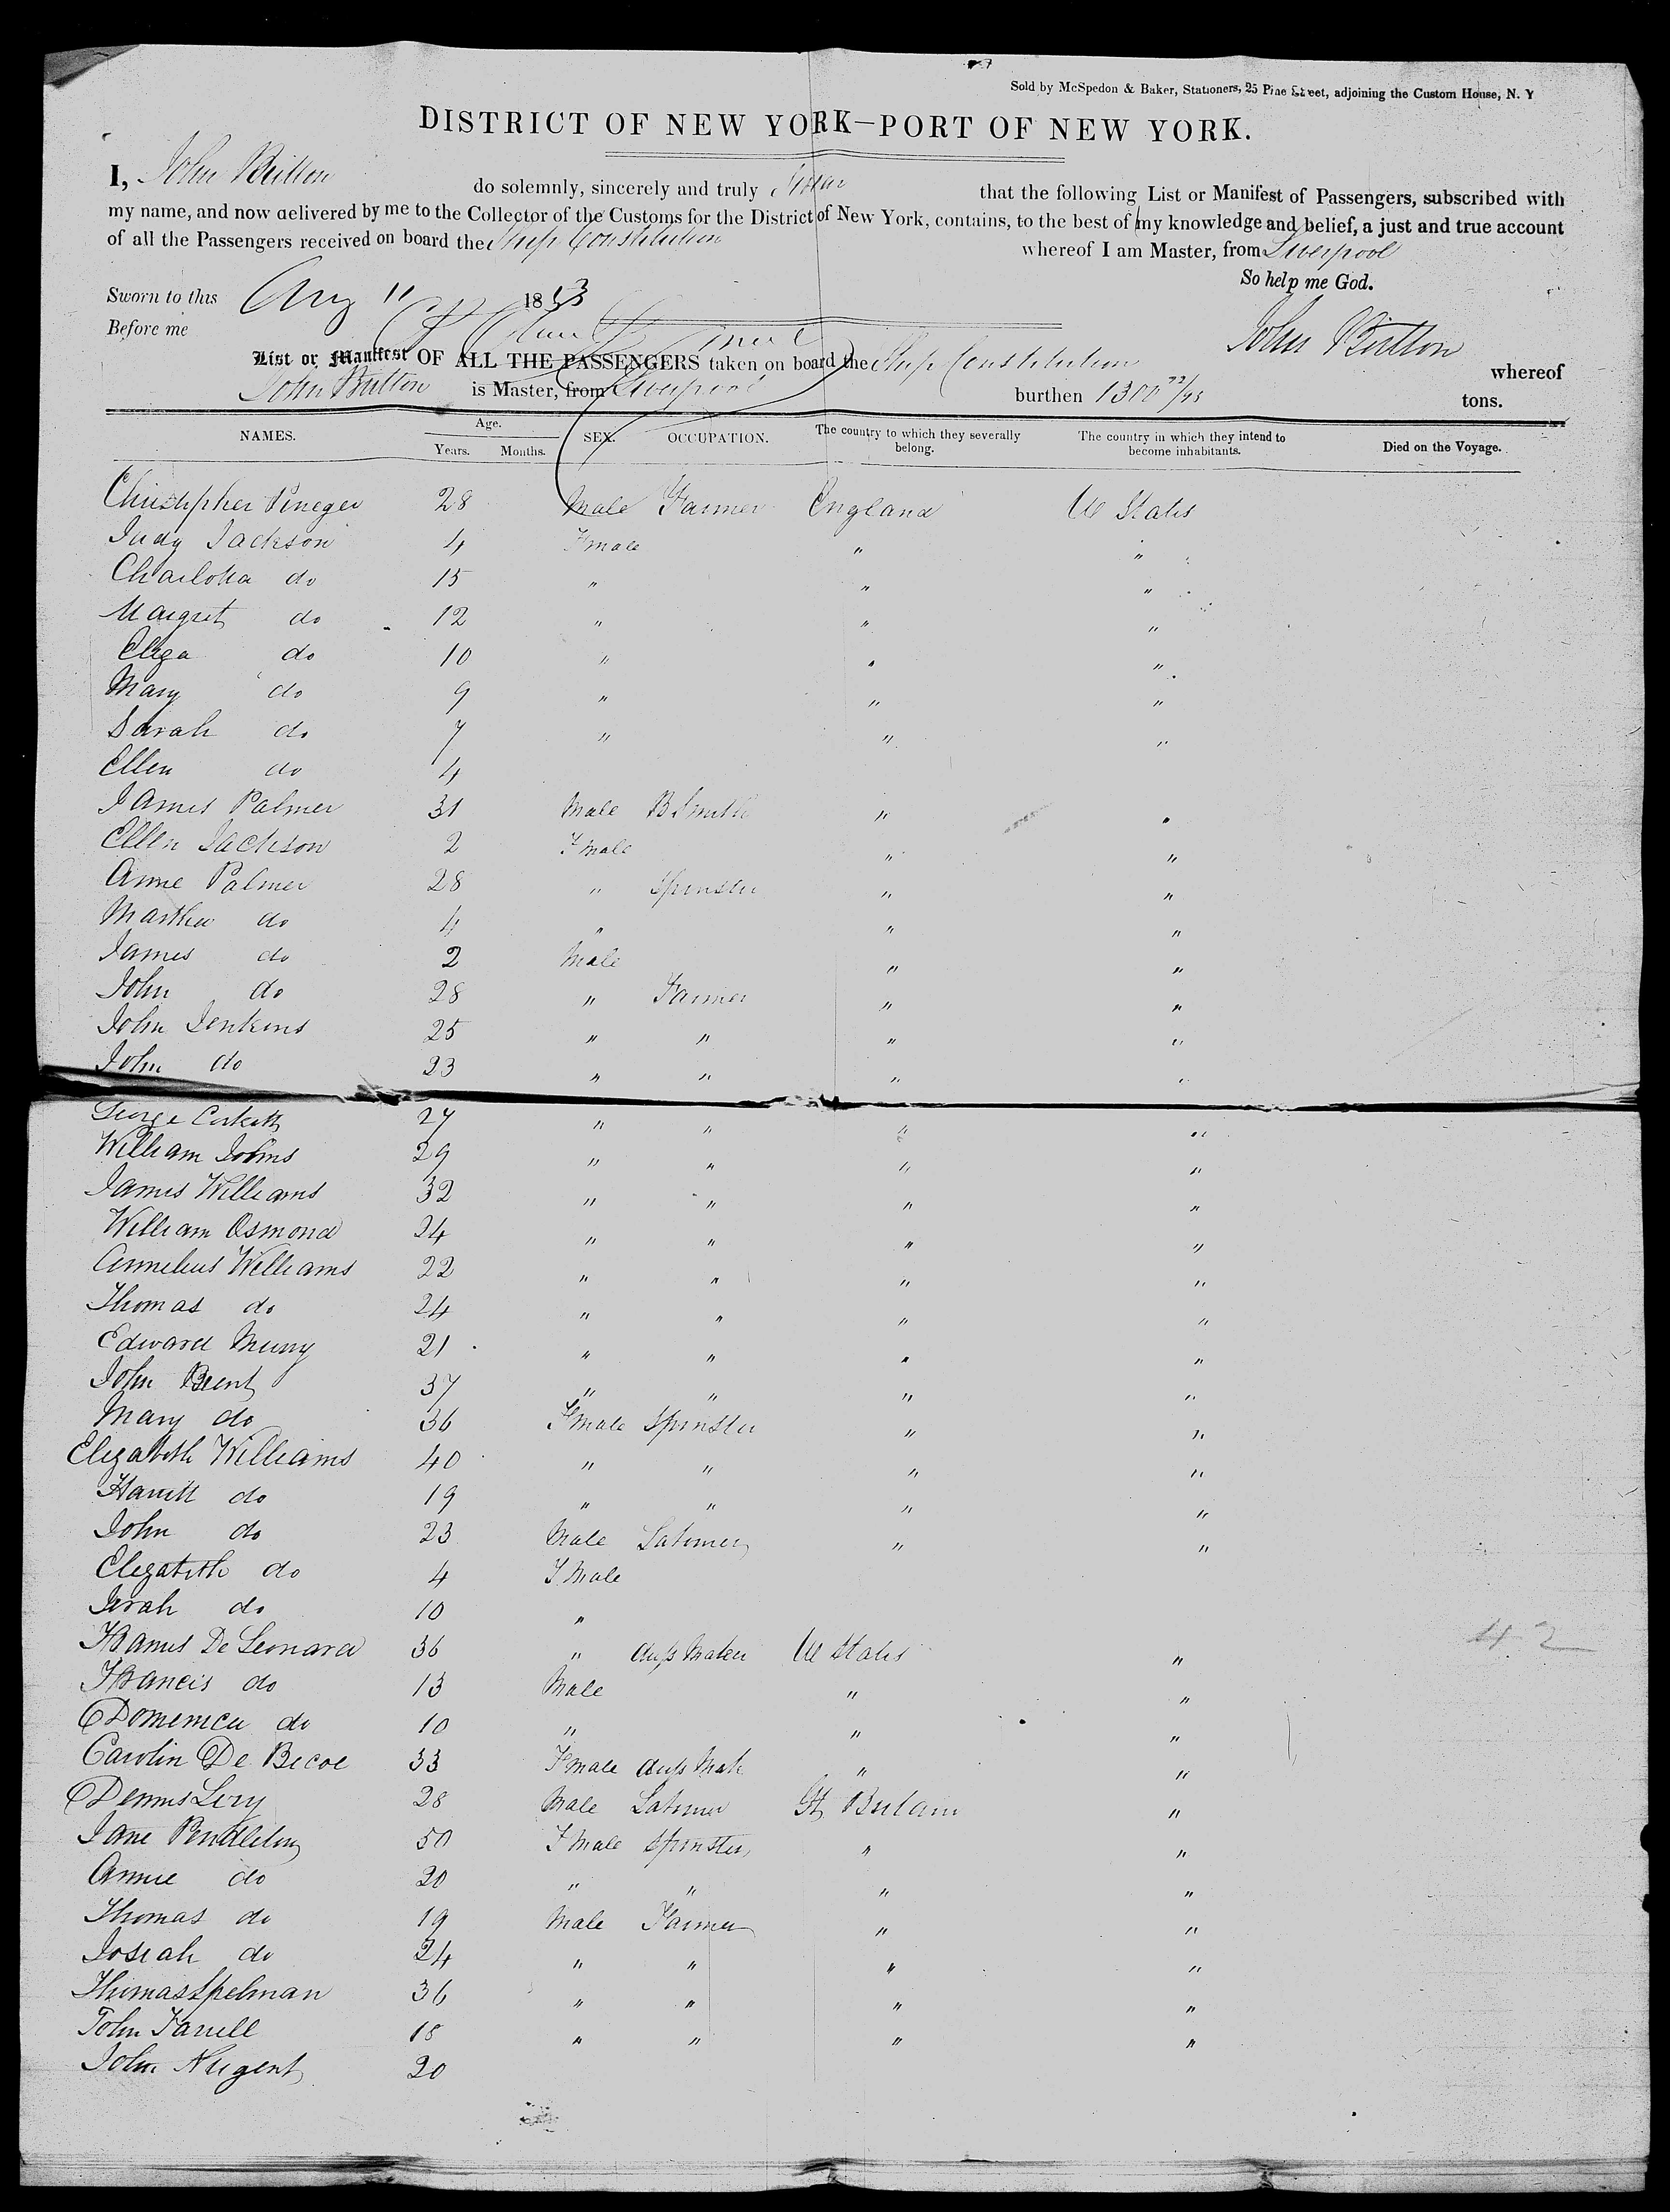 Sold by McSpedon & Baker, Stationers, 25 Pine Street, adjoining the Custom House, N. Y
DISTRICT OF NEW YORK—PORT OF NEW YORK.
I, John Britton do solemnly, sincerely and truly Swear that the following List or Manifest of Passengers, subscribed with
my name, and now delivered by me to the Collector of the Customs for the District of New York, contains, to the best of my knowledge and belief, a just and true account
of all the Passengers received on board the Ship Constitution whereof I am Master, from Liverpool
So help me God.
Sworn to this Aug 11 1853
Before me John Britton
List or Manifest OF ALL THE PASSENGERS taken on board the Ship Constitution whereof
John Britton is Master, from Liverpool burthen 1300 72/95 tons.
NAMES. Age. Years. Months. SEX. OCCUPATION. The country to which they severally belong. The country in which they intend to become inhabitants. Died on the Voyage.
Christopher Pineger 28 Male Farmer England U States
Judy Jackson 4 Fmale " "
Charlotta do 15 " " "
Margret do 12 " " "
Eliza do 10 " " "
Mary do 9 " " "
Sarah do 7 " " "
Ellen do 4
James Palmer 31 Male B Smith " "
Ellen Jackson 2 Fmale " "
Anne Palmer 28 " Spinster " "
Martha do 4 " " "
James do 2 Male " "
John do 28 " Farmer " "
John Jenkins 25 " " " "
John do 23 " " " "
George 27 " " " "
William Johns 29 " " " "
James Williams 32 " " " "
William Osmond 24 " " " "
Williams 22 " " " "
Thomas do 24 " " " "
Edward 21 " " " "
John Brent 37 " " " "
Mary do 36 Fmale Spinster " "
Elizabeth Williams 40 " " " "
Harritt do 19 " " " "
John do 23 Male Laborer " "
Elizabeth do 4 F Male
Sarah do 10 "
De Leonard 36 " Maker U States "
Francis do 13 Male " "
Domenica do 10 " " "
Carolin De 33 Fmale " "
Dennis 28 Male Laborer Gt Britain "
Jane Pendleton 50 F Male Spinster " "
Annie do 20 " " " "
Thomas do 19 Male Farmer " "
Josiah do 24 " " " "
Thomas Spelman 36 " " " "
John Farrell 18 " " " "
John Nugent 20
42